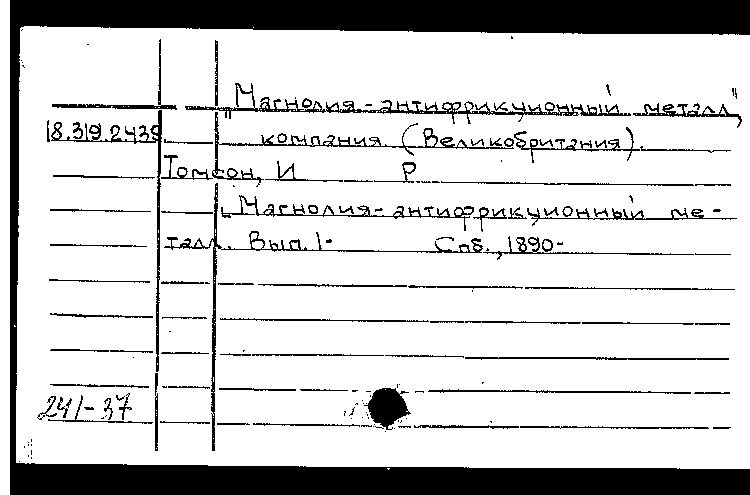 „Магнолия-антифрикционный металл",
18.319.2439. компания (Великобритания).
Томсон, И Р
Магнолия-антифрикционный ме-
талл. Вып. 1- Спб., 1890-
241-37